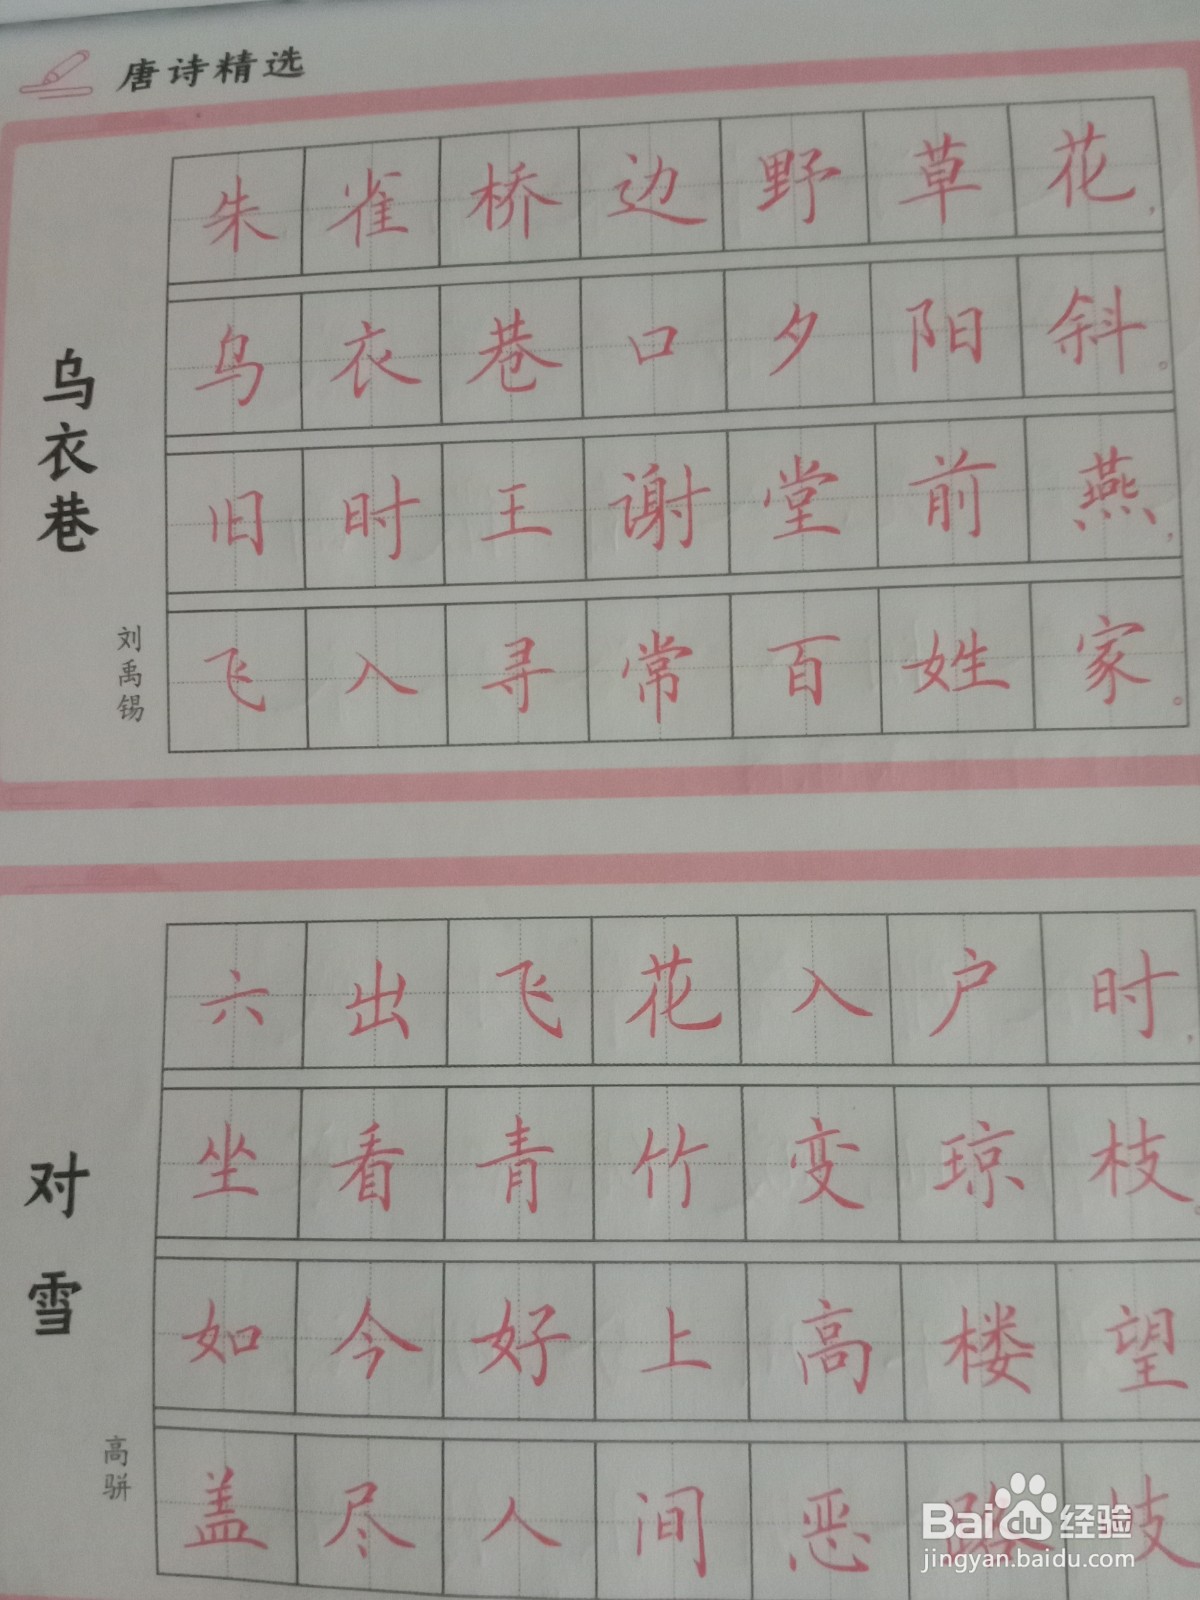 唐诗精选
乌衣巷
刘禹锡
朱雀桥边野草花，
乌衣巷口夕阳斜。
旧时王谢堂前燕，
飞入寻常百姓家。
对雪
高骈
六出飞花入户时，
坐看青竹变琼枝。
如今好上高楼望
盖尽人间恶
Baidu经验
jingyan.baidu.com